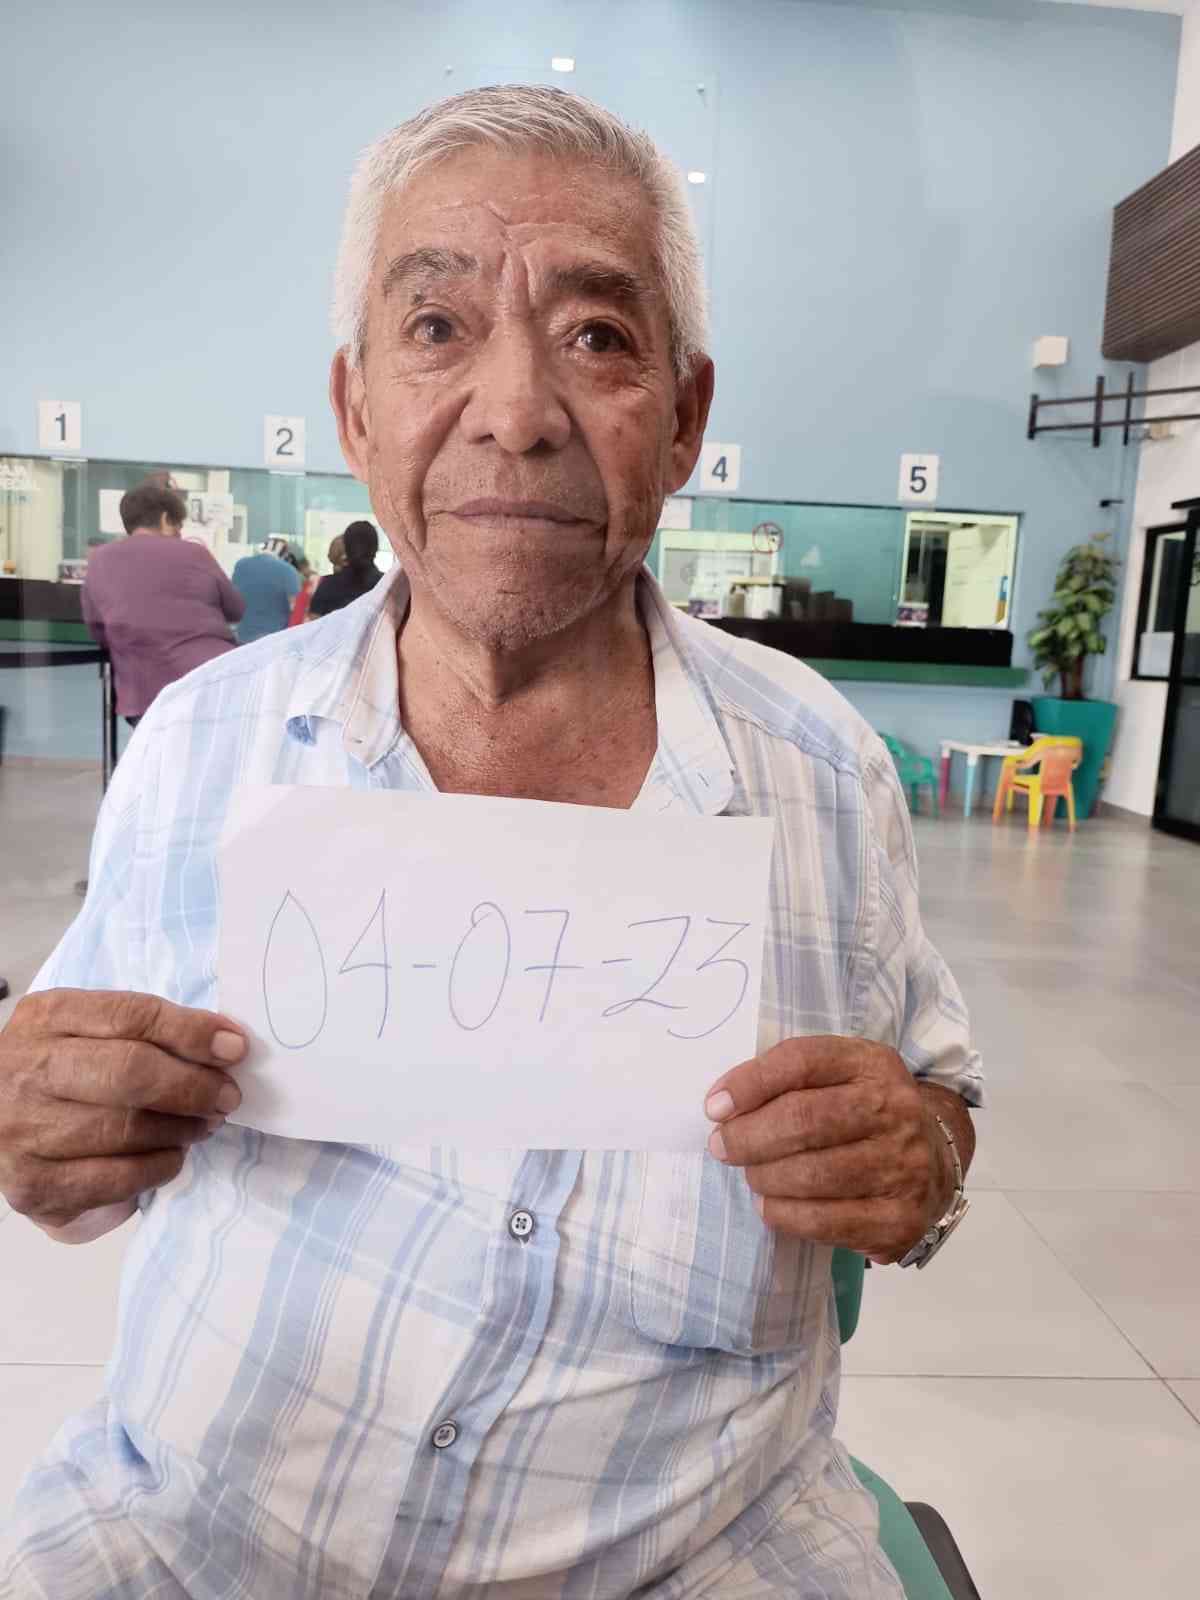 1
2
4
5
04-07-23